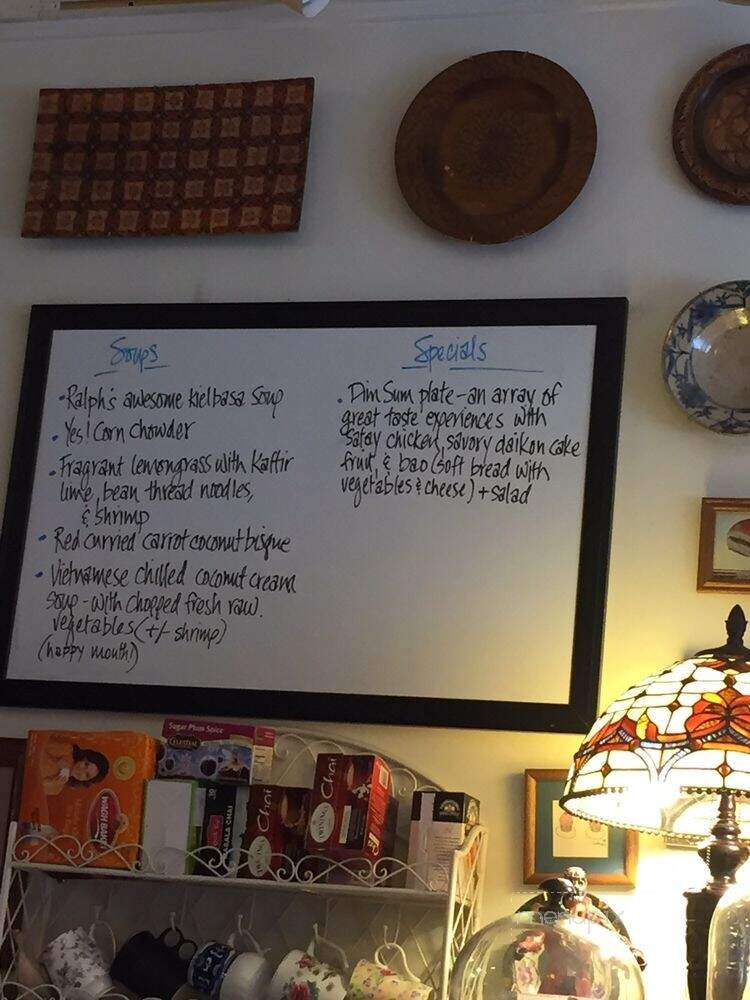 Soups
• Ralph's awesome kielbasa soup
• Yes! Corn chowder
• Fragrant lemongrass with Kaffir
lime, bean thread noodles,
& shrimp
• Red curried carrot coconut bisque
• Vietnamese chilled coconut cream
soup - with chopped fresh raw.
vegetables (+/- shrimp)
(happy mouth!)
Specials
• Dim Sum plate - an array of
great taste experiences with
satay chicken, savory daikon cake
fruit, & bao (soft bread with
vegetables & cheese) + salad
Sugar Plum Spice
CELESTIAL
WAGH BAKRI
MASALA CHAI
Chai
TWININGS
Chai
TWININGS
menupix